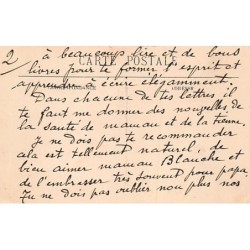 2 à beaucoup lire et de bons
CARTE POSTALE
livres pour te former l'esprit et
apprendre à écrire élégamment.
Dans chacune de tes lettres il
te faut me donner des nouvelles de
la santé de maman et de la tienne.
Je ne dois pas te recommander
cela est tellement naturel, de
bien aimer maman Blanche et
de l'embrasser très souvent pour papa.
Tu ne dois pas oublier non plus nos